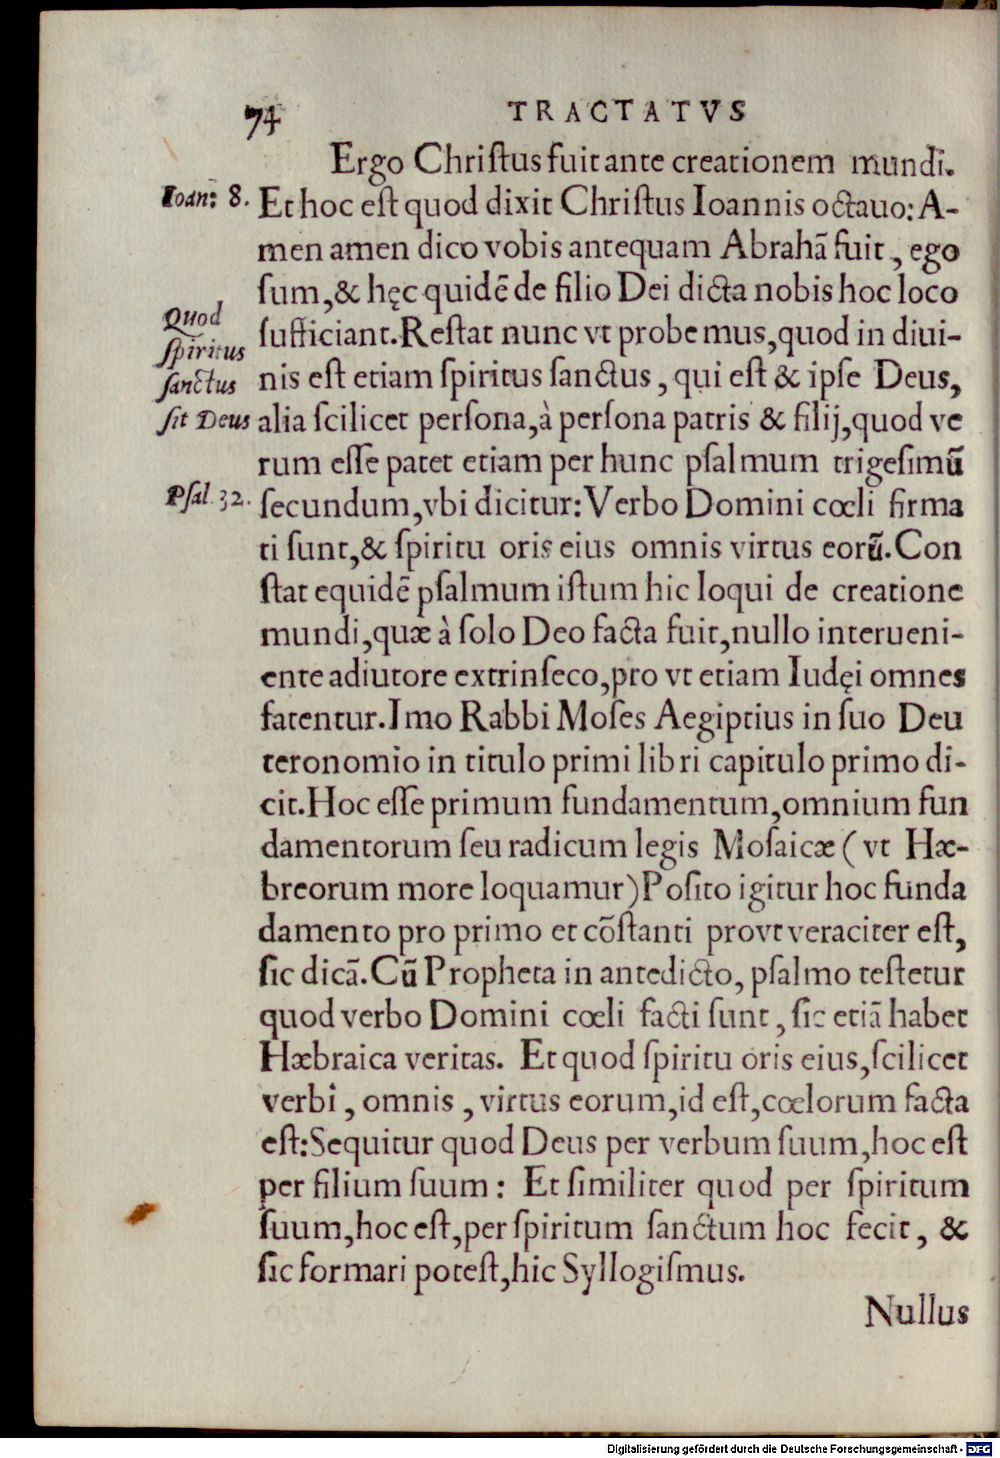 74 TRACTATVS
Ergo Chriſtus fuit ante creationem mundi.
Ioan: 8. Et hoc eſt quod dixit Chriſtus Ioannis octauo: A-
men amen dico vobis antequam Abrahã fuit, ego
ſum, & hęc quidẽ de filio Dei dicta nobis hoc loco
Quod
ſufficiant. Reſtat nunc vt probe mus, quod in diui-
ſpiritus
ſanctus nis eſt etiam ſpiritus ſanctus, qui eſt & ipſe Deus,
ſit Deus alia ſcilicet perſona, à perſona patris & filij, quod ve
rum eſſe patet etiam per hunc pſalmum trigeſimũ
Pſal 32. ſecundum, vbi dicitur: Verbo Domini cœli firma
ti ſunt, & ſpiritu oris eius omnis virtus eorũ. Con
ſtat equidẽ pſalmum iſtum hic loqui de creatione
mundi, quæ à ſolo Deo facta fuit, nullo interueni-
ente adiutore extrinſeco, pro vt etiam Iudęi omnes
fatentur. Imo Rabbi Moſes Aegiptius in ſuo Deu
teronomio in titulo primi libri capitulo primo di-
cit. Hoc eſſe primum fundamentum, omnium fun
damentorum ſeu radicum legis Moſaicæ (vt Hæ-
breorum more loquamur) Poſito igitur hoc funda
damento pro primo et cõſtanti provt veraciter eſt,
ſic dicã. Cũ Propheta in antedicto, pſalmo teſtetur
quod verbo Domini cœli facti ſunt, ſic etiã habet
Hæbraica veritas. Et quod ſpiritu oris eius, ſcilicet
verbi, omnis, virtus eorum, id eſt, cœlorum facta
eſt: Sequitur quod Deus per verbum ſuum, hoc eſt
per filium ſuum: Et ſimiliter quod per ſpiritum
ſuum, hoc eſt, per ſpiritum ſanctum hoc fecit, &
ſic formari poteſt, hic Syllogiſmus.
Nullus
Digitalisierung gefördert durch die Deutsche Forschungsgemeinschaft - DFG